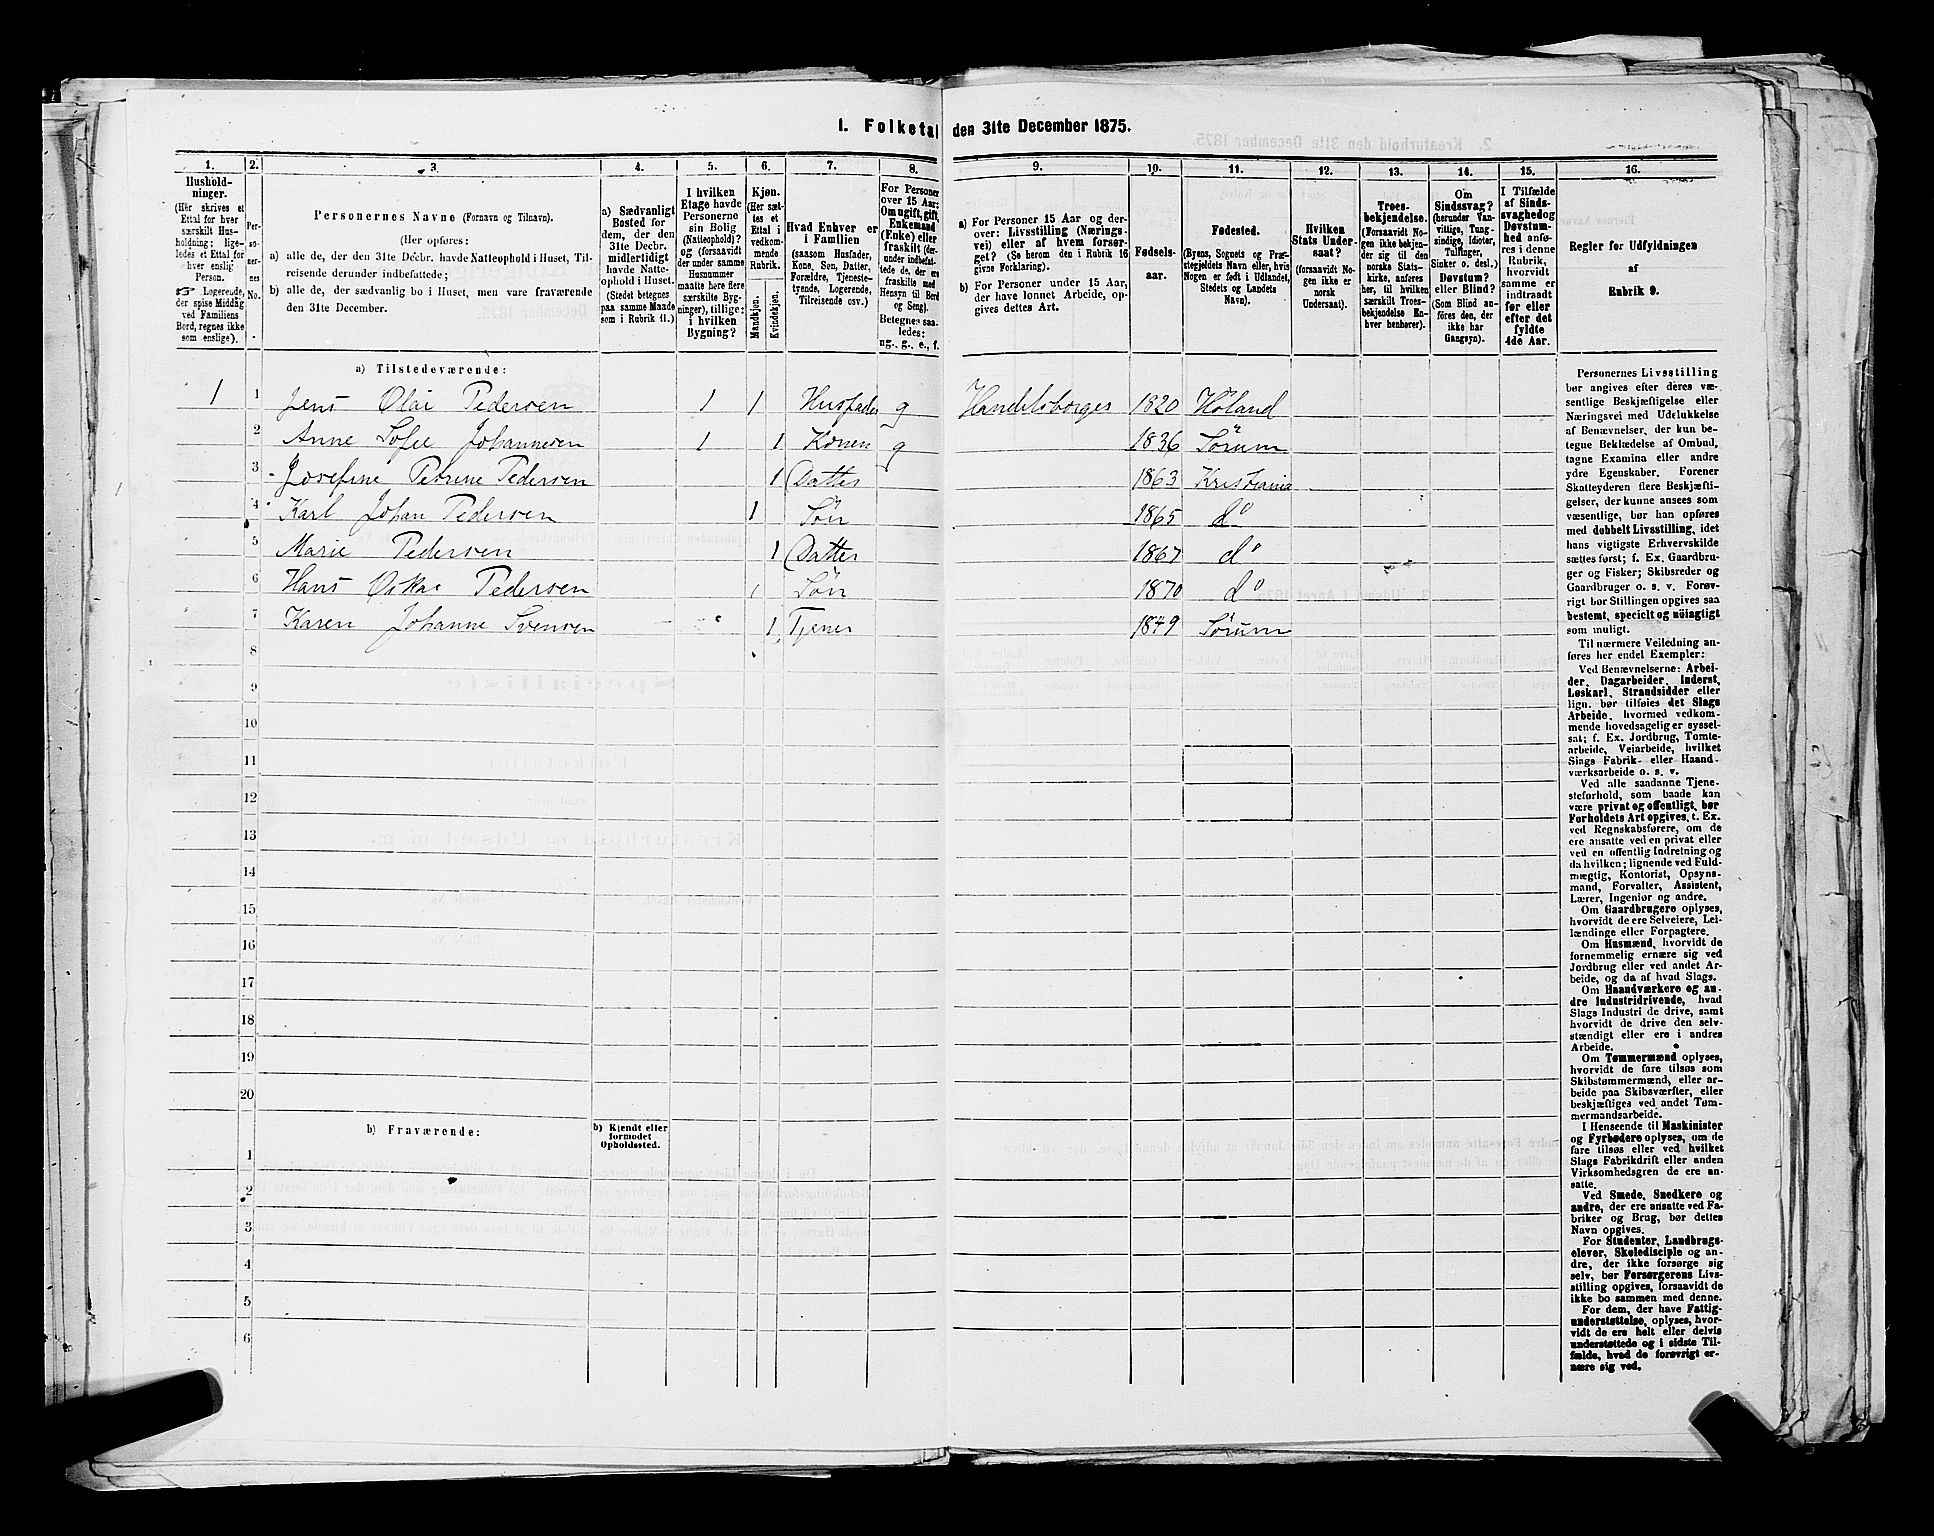 1. Folketal den 31te December 1875.
1. 2. 3. 4. 5. 6. 7. 8. 9. 10. 11. 12. 13. 14. 15. 16.
Hushold-
ninger.
(Her skrives et
Ettal for hver
særskilt Hus-
holdning; lige-
ledes et Ettal for
hver enslig
Person.
☞ Logerende,
der spise Middag
ved Familiens
Bord, regnes ikke
som enslige).
Per-
so-
ner-
nes
No.
Personernes Navne (Fornavn og Tilnavn).
(Her opføres:
a) alle de, der den 31te Decbr. havde Natteophold i Huset, Til-
reisende derunder indbefattede;
b) alle de, der sædvanlig bo i Huset, men vare fraværende
den 31te December.
a) Sædvanligt
Bosted for
dem, der den
31te Decbr.
midlertidigt
havde Natte-
ophold i Huset.
(Stedet betegnes
paa samme Maade
som i Rubrik 11.)
I hvilken
Etage havde
Personerne
sin Bolig
(Natteophold)?
og (forsaavidt
der under samme
Husnummer
maatte høre flere
særskilte Byg-
ninger), tillige:
i hvilken
Bygning?
Kjøn.
(Her sæt-
tes et
Ettal i
vedkom-
mende
Rubrik.
Mandkjøn.
Kvindekjøn.
Hvad Enhver er
i Familien
(saasom Husfader,
Kone, Søn, Datter,
Forældre, Tjeneste-
tyende, Logerende,
Tilreisende osv.)
For Personer
over 15 Aar:
Om ugift, gift,
Enkemand
(Enke) eller
fraskilt (der-
under indbefat-
tede de, der ere
fraskilte med
Hensyn til Bord
og Seng).
Betegnes saa-
ledes:
ug., g., e., f.
a) For Personer 15 Aar og der-
over: Livsstilling (Nærings-
vei) eller af hvem forsør-
get? (Se herom den i Rubrik 16
givne Forklaring).
b) For Personer under 15 Aar,
der have lønnet Arbeide, op-
gives dettes Art.
Fødsels-
aar.
Fødested.
(Byens, Sognets og Præ-
stegjeldets Navn eller, hvis
Nogen er født i Udlandet,
Stedets og Landets
Navn).
Hvilken
Stats Under-
saat?
(forsaavidt No-
gen ikke er
norsk
Undersaat).
Troes-
bekjendelse.
(Forsaavidt No-
gen ikke bekjen-
der sig til den
norske Stats-
kirke, anføres
her, til hvilken
særskilt Troes-
bekjendelse En-
hver henhører).
Om
Sindssvag?
(herunder Van-
vittige, Tung-
sindige, Idioter,
Tulfinger,
Sinker o. desl.)
Døvstum?
eller Blind?
(Som Blind an-
føres den, der
ikke har
Gangsyn).
I Tilfælde
af Sinds-
svaghed og
Døvstum-
hed anfø-
res i denne
Rubrik,
hvorvidt
samme er
indtraadt
før eller
efter det
fyldte
4de Aar.
Regler for Udfyldningen
af
Rubrik 9.
a) Tilstedeværende:
1 1 Jens Olai Pedersen 1 1 Husfader g Handelsborger 1820 Høland
2 Anne Sofie Johannesen 1 1 Konen g 1836 Sørum
3 Josefine Petrine Pedersen 1 Datter 1863 Kristiania
4 Karl Johan Pedersen 1 Søn 1865 do
5 Marie Pedersen 1 Datter 1867 do
6 Hans Oskar Pedersen 1 Søn 1870 do
7 Karen Johanne Svensen 1 Tjener 1849 Sørum
8
9
10
11
12
13
14
15
16
17
18
19
20
b) Fraværende:
b) Kjendt eller
formodet
Opholdssted.
1
2
3
4
5
6
Personernes Livsstilling
bør angives efter deres væ-
sentlige Beskjæftigelse eller
Næringsvei med Udelukkelse
af Benævnelser, der kun be-
tegne Beklædelse af Ombud,
tagne Examina eller andre
ydre Egenskaber. Forener
Skatteyderen flere Beskjæfti-
gelser, der kunne ansees som
væsentlige, bør han opføres
med dobbelt Livsstilling, idet
hans vigtigste Erhvervskilde
sættes først; f. Ex. Gaardbru-
ger og Fisker; Skibsreder og
Gaardbruger o. s. v. Forøv-
rigt bør Stillingen opgives saa
bestemt, specielt og nøiagtigt
som muligt.
Til nærmere Veiledning an-
føres her endel Exempler:
Ved Benævnelserne: Arbei-
der, Dagarbeider, Inderst,
Løskarl, Strandsidder eller
lign. bør tilføies det Slags
Arbeide, hvormed vedkom-
mende hovedsagelig er syssel-
sat; f. Ex. Jordbrug, Tomte-
arbeide, Veiarbeide, hvilket
Slags Fabrik- eller Haand-
værksarbeide o. s. v.
Ved alle saadanne Tjene-
steforhold, som baade kan
være privat og offentligt, bør
Forholdets Art opgives, t. Ex.
ved Regnskabsførere, om de
ere ansatte ved en privat eller
ved en offentlig Indretning og
da hvilken; lignende ved Fuld-
mægtig, Kontorist, Opsyns-
mand, Forvalter, Assistent,
Lærer, Ingeniør og andre.
Om Gaardbrugere oplyses,
hvorvidt de ere Selveiere, Lei-
lændinge eller Forpagtere.
Om Husmænd, hvorvidt de
fornemmelig ernære sig ved
Jordbrug eller ved andet Ar-
beide, og da af hvad Slags.
Om Haandværkere og an-
dre Industridrivende, hvad
Slags Industri de drive, samt
hvorvidt de drive den selv-
stændigt eller ere i andres
Arbeide.
Om Tømmermænd oplyses,
hvorvidt de fare tilsøs som
Skibstømmermænd, eller ar-
beide paa Skibsværfter, eller
beskjæftiges ved andet Tøm-
mermandsarbeide.
I Henseende til Maskinister
og Fyrbødere oplyses, om de
fare tilsøs eller ved hvilket
Slags Fabrikdrift eller anden
Virksomhedsgren de ere an-
satte.
Ved Smede, Snedkere og
andre, der ere ansatte ved Fa-
briker og Brug, bør dettes
Navn opgives.
For Studenter, Landbrugs-
elever, Skoledisciple og an-
dre, der ikke forsørge sig
selv, bør Forsørgerens Livs-
stilling opgives, forsaavidt de
ikke bo sammen med denne.
For dem, der have Fattig-
understøttelse, oplyses, hvor-
vidt de ere helt eller delvis
understøttede og i sidste Til-
fælde, hvad de forøvrigt er-
nære sig ved.